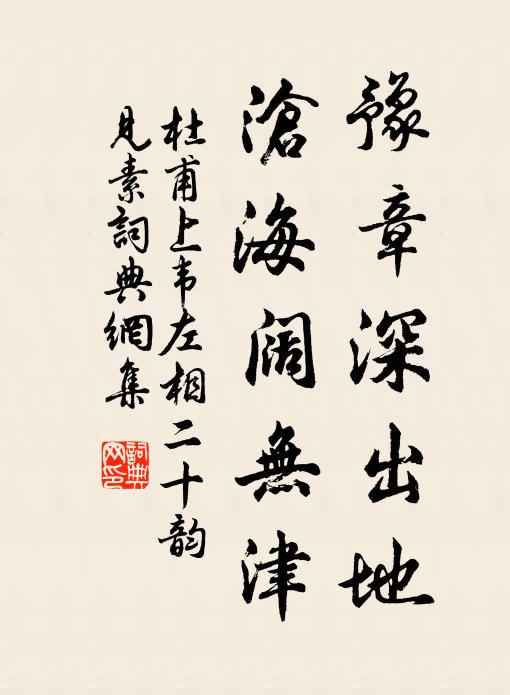 豫章深出地
滄海阔無津
杜甫上韦左相二十韵
見素詞典網集
詞典網印